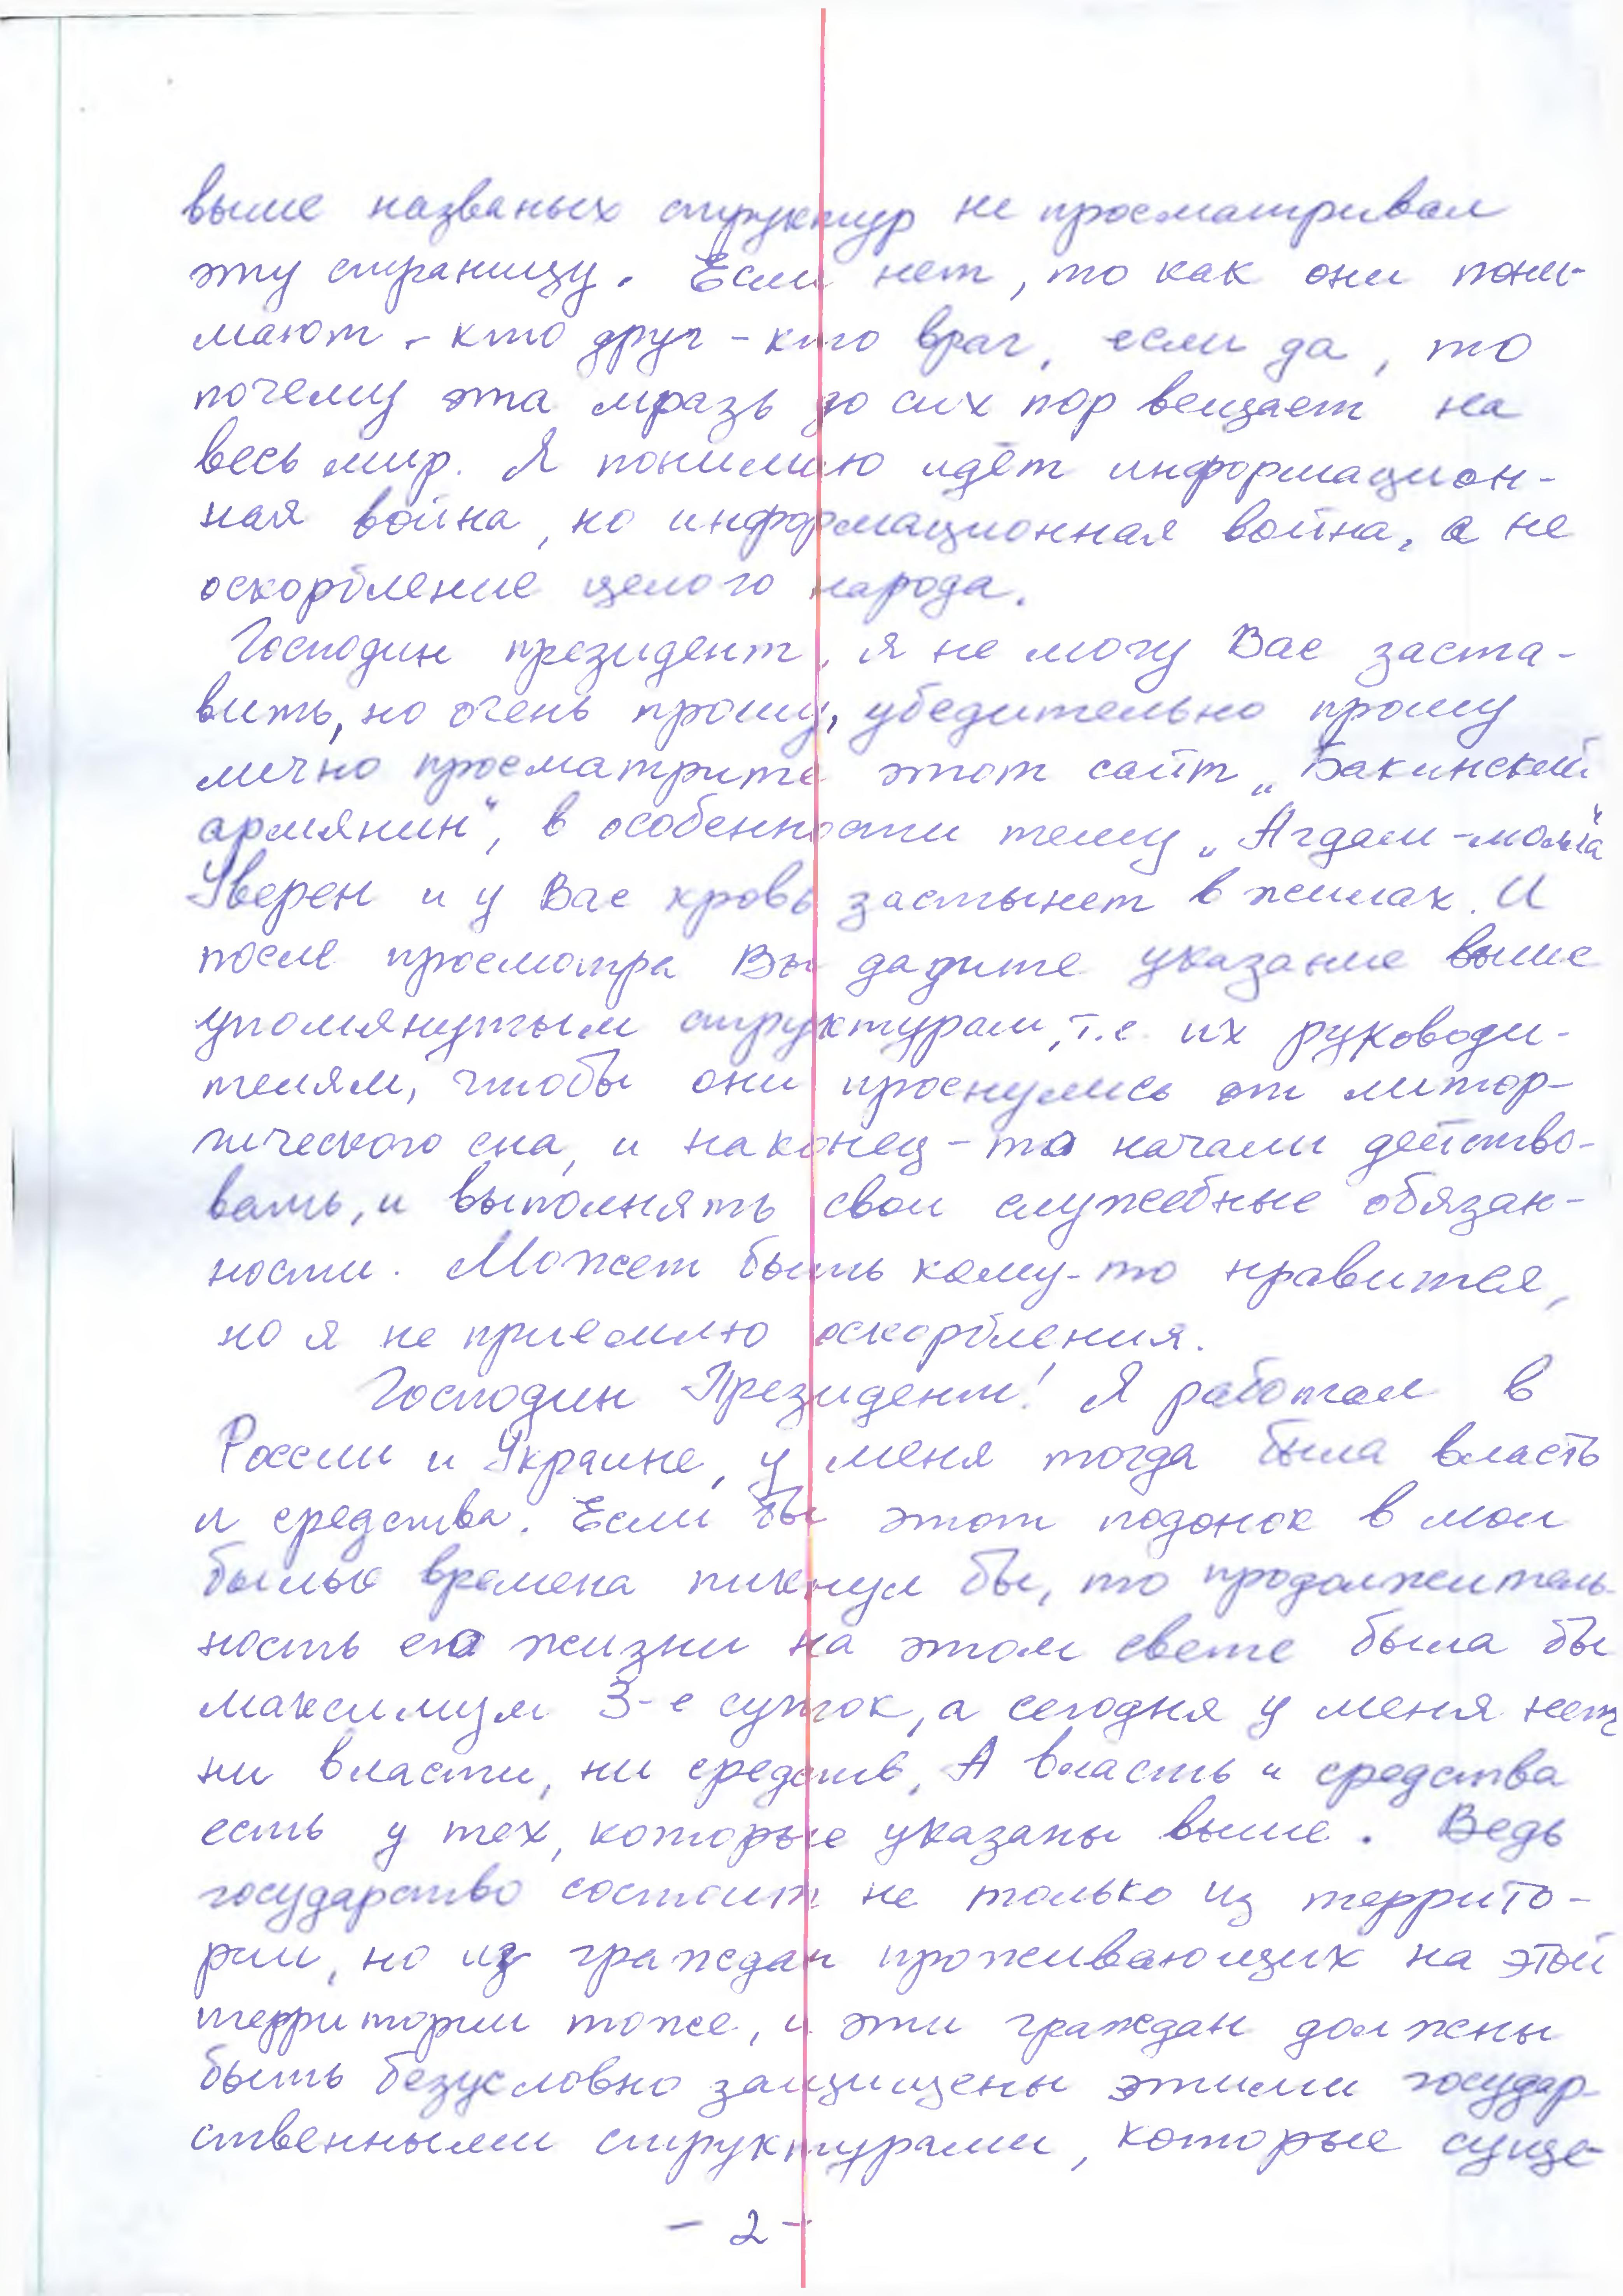 выше названых структур не просматривал
эту страницу. Если нет, то как они пони-
мают - кто друг - кто враг, если да, то
почему эта мразь до сих пор вещает на
весь мир. Я понимаю идёт информацион-
ная война, но информационная война, а не
оскорбление целого народа.
Господин президент, я не могу Вас заста-
вить, но очень прошу, убедительно прошу
лично просматрите этот сайт „Бакинский
армянин“, в особенности тему „Агдам -
Уверен и у Вас кровь застынет в жилах. И
после просмотра Вы дадите указание выше
упомянутым структурам, т.е их руководи-
телям, чтобы они проснулись от литор-
гического сна, и наконец-то начали действо-
вать, и выполнять свои служебные обязан-
ности. Может быть кому-то нравится,
но я не приемлю оскорбления.
Господин Президент! Я работал в
России и Украине, у меня тогда была власть
и средства. Если бы этот подонок в мои
былые времена пикнул бы, то продолжитель-
ность его жизни на этом свете была бы
максимум 3-е суток, а сегодня у меня нет
ни власти, ни средств. А власть и средства
есть у тех, которые указаны выше. Ведь
государство состоит не только из террито-
рии, но из граждан проживающих на этой
территории тоже, и эти граждан должны
быть безусловно защищены этими государ-
ственными структурами, которые суще-
- 2 -